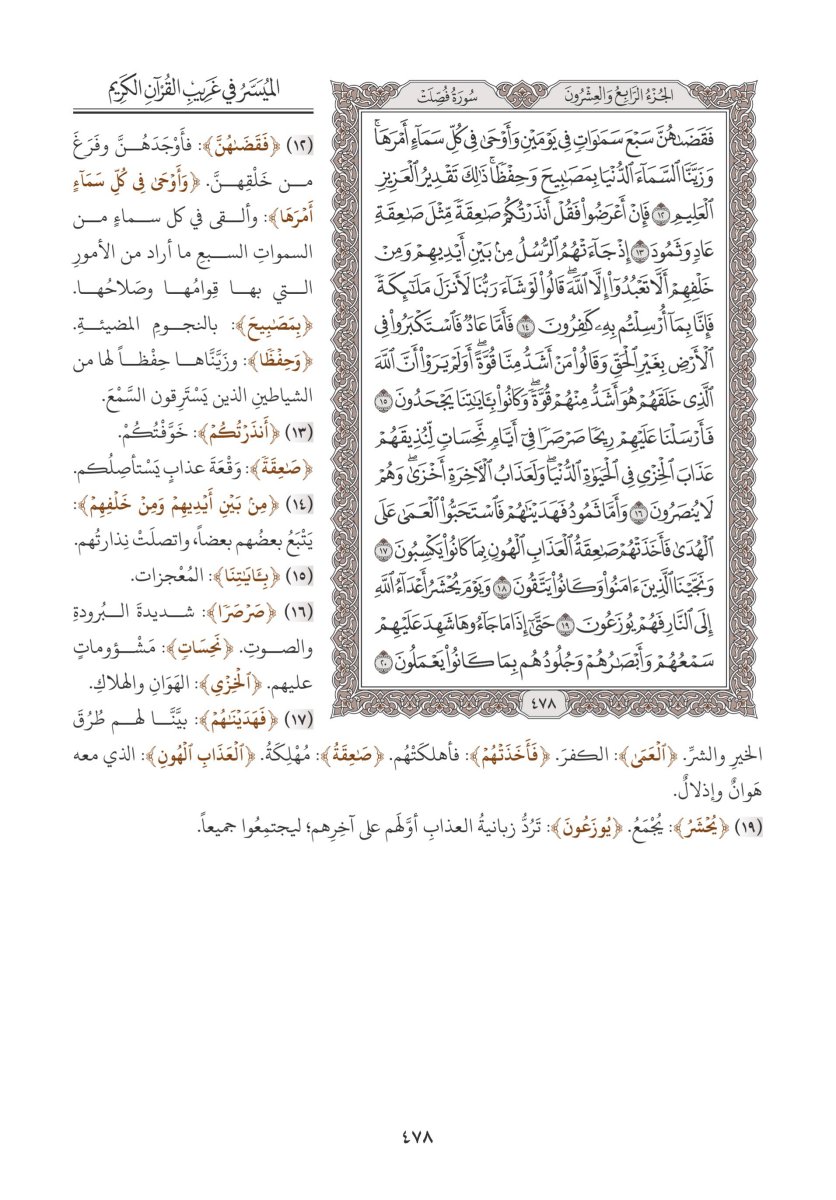 الجُزْءُ الرَّابِعُ وَالعِشْرُونَ
سُورَةُ فُصِّلَتْ
فَقَضَىٰهُنَّ سَبْعَ سَمَٰوَاتٖ فِي يَوۡمَيۡنِ وَأَوۡحَىٰ فِي كُلِّ سَمَآءٍ أَمۡرَهَاۚ
وَزَيَّنَّا ٱلسَّمَآءَ ٱلدُّنۡيَا بِمَصَٰبِيحَ وَحِفۡظٗاۚ ذَٰلِكَ تَقۡدِيرُ ٱلۡعَزِيزِ
ٱلۡعَلِيمِ ١٢ فَإِنۡ أَعۡرَضُواْ فَقُلۡ أَنذَرۡتُكُمۡ صَٰعِقَةٗ مِّثۡلَ صَٰعِقَةِ
عَادٖ وَثَمُودَ ١٣ إِذۡ جَآءَتۡهُمُ ٱلرُّسُلُ مِنۢ بَيۡنِ أَيۡدِيهِمۡ وَمِنۡ
خَلۡفِهِمۡ أَلَّا تَعۡبُدُوٓاْ إِلَّا ٱللَّهَۖ قَالُواْ لَوۡ شَآءَ رَبُّنَا لَأَنزَلَ مَلَٰٓئِكَةٗ
فَإِنَّا بِمَآ أُرۡسِلۡتُم بِهِۦ كَٰفِرُونَ ١٤ فَأَمَّا عَادٞ فَٱسۡتَكۡبَرُواْ فِي
ٱلۡأَرۡضِ بِغَيۡرِ ٱلۡحَقِّ وَقَالُواْ مَنۡ أَشَدُّ مِنَّا قُوَّةًۖ أَوَلَمۡ يَرَوۡاْ أَنَّ ٱللَّهَ
ٱلَّذِي خَلَقَهُمۡ هُوَ أَشَدُّ مِنۡهُمۡ قُوَّةٗۖ وَكَانُواْ بِـَٔايَٰتِنَا يَجۡحَدُونَ ١٥
فَأَرۡسَلۡنَا عَلَيۡهِمۡ رِيحٗا صَرۡصَرٗا فِيٓ أَيَّامٖ نَّحِسَاتٖ لِّنُذِيقَهُمۡ
عَذَابَ ٱلۡخِزۡيِ فِي ٱلۡحَيَوٰةِ ٱلدُّنۡيَاۖ وَلَعَذَابُ ٱلۡأٓخِرَةِ أَخۡزَىٰۖ وَهُمۡ
لَا يُنصَرُونَ ١٦ وَأَمَّا ثَمُودُ فَهَدَيۡنَٰهُمۡ فَٱسۡتَحَبُّواْ ٱلۡعَمَىٰ عَلَى
ٱلۡهُدَىٰ فَأَخَذَتۡهُمۡ صَٰعِقَةُ ٱلۡعَذَابِ ٱلۡهُونِ بِمَا كَانُواْ يَكۡسِبُونَ ١٧
وَنَجَّيۡنَا ٱلَّذِينَ ءَامَنُواْ وَكَانُواْ يَتَّقُونَ ١٨ وَيَوۡمَ يُحۡشَرُ أَعۡدَآءُ ٱللَّهِ
إِلَى ٱلنَّارِ فَهُمۡ يُوزَعُونَ ١٩ حَتَّىٰٓ إِذَا مَا جَآءُوهَا شَهِدَ عَلَيۡهِمۡ
سَمۡعُهُمۡ وَأَبۡصَٰرُهُمۡ وَجُلُودُهُم بِمَا كَانُواْ يَعۡمَلُونَ ٢٠
٤٧٨
المُيَسَّرُ في غَرِيبِ القُرْآنِ الكَرِيمِ
(١٢) ﴿فَقَضَىٰهُنَّ﴾: فأَوْجَدَهُنَّ وفَرَغَ
من خَلْقِهنَّ. ﴿وَأَوۡحَىٰ فِي كُلِّ سَمَآءٍ
أَمۡرَهَا﴾: وألقى في كل سماءٍ من
السمواتِ السبع ما أراد من الأمورِ
التي بها قِوامُها وصَلاحُها.
﴿بِمَصَٰبِيحَ﴾: بالنجومِ المضيئةِ.
﴿وَحِفۡظٗا﴾: وزيَّنَّاها حِفْظاً لها من
الشياطينِ الذين يَسْتَرِقون السَّمْعَ.
(١٣) ﴿أَنذَرۡتُكُمۡ﴾: خَوَّفْتُكُمْ.
﴿صَٰعِقَةٗ﴾: وَقْعَةَ عذابٍ يَسْتأصِلُكم.
(١٤) ﴿مِنۢ بَيۡنِ أَيۡدِيهِمۡ وَمِنۡ خَلۡفِهِمۡ﴾:
يَتْبَعُ بعضُهم بعضاً، واتصلَتْ نِذارتُهم.
(١٥) ﴿بِـَٔايَٰتِنَا﴾: المُعْجزات.
(١٦) ﴿صَرۡصَرٗا﴾: شديدةَ البُرودةِ
والصوتِ. ﴿نَّحِسَاتٖ﴾: مَشْؤوماتٍ
عليهم. ﴿ٱلۡخِزۡيِ﴾: الهَوَانِ والهلاكِ.
(١٧) ﴿فَهَدَيۡنَٰهُمۡ﴾: بيَّنَّا لهم طُرُقَ
الخيرِ والشرِّ. ﴿ٱلۡعَمَىٰ﴾: الكفرَ. ﴿فَأَخَذَتۡهُمۡ﴾: فأهلكَتْهُم. ﴿صَٰعِقَةُ﴾: مُهْلِكَةُ. ﴿ٱلۡعَذَابِ ٱلۡهُونِ﴾: الذي معه
هَوانٌ وإذلالٌ.
(١٩) ﴿يُحۡشَرُ﴾: يُجْمَعُ. ﴿يُوزَعُونَ﴾: تَرُدُّ زبانيةُ العذابِ أوَّلَهم على آخِرِهم؛ ليجتمِعُوا جميعاً.
٤٧٨